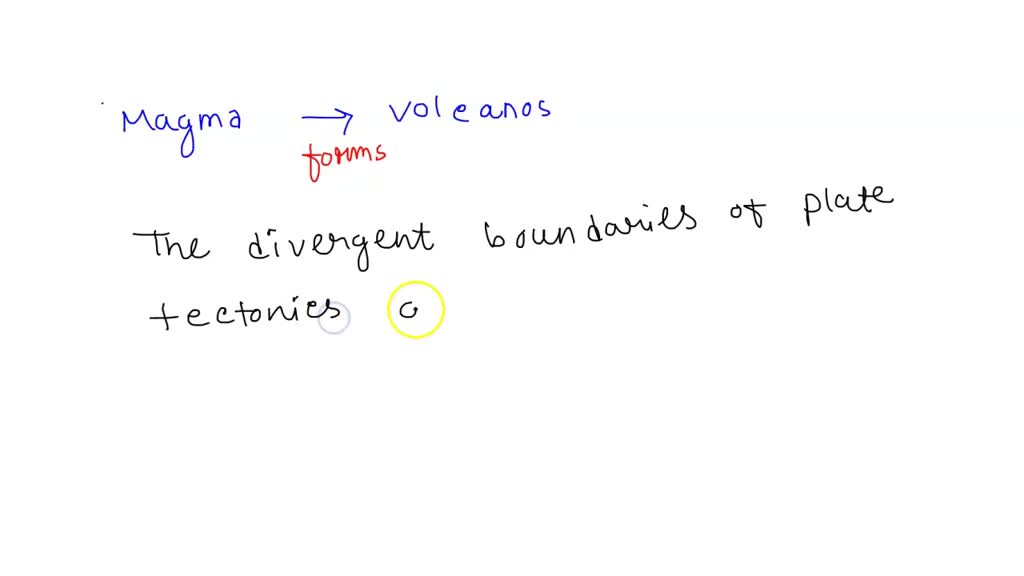 Magma → voleanos
forms
The divergent boundaries of plate
tectonies a